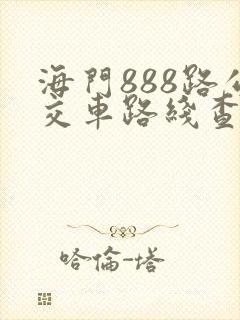 海門888路公
交車路綫查
哈倫-塔